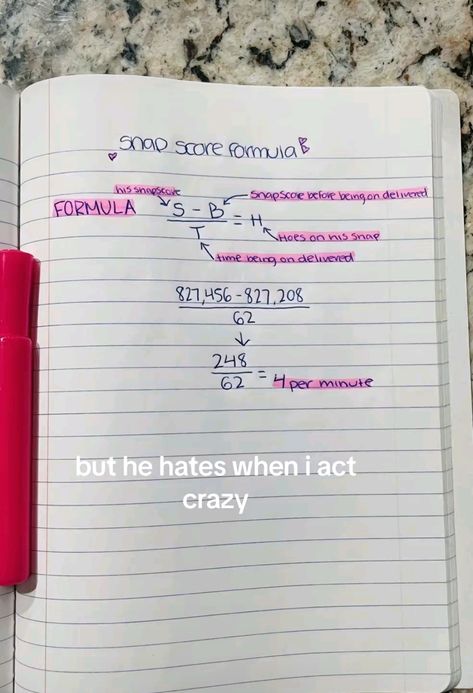 snap score formula
his snapscore
snapscore before being on delivered
FORMULA
S - B
T
= H
Hoes on his snap
time being on delivered
827,456 - 827,208
62
248
62
= 4 per minute
but he hates when i act
crazy